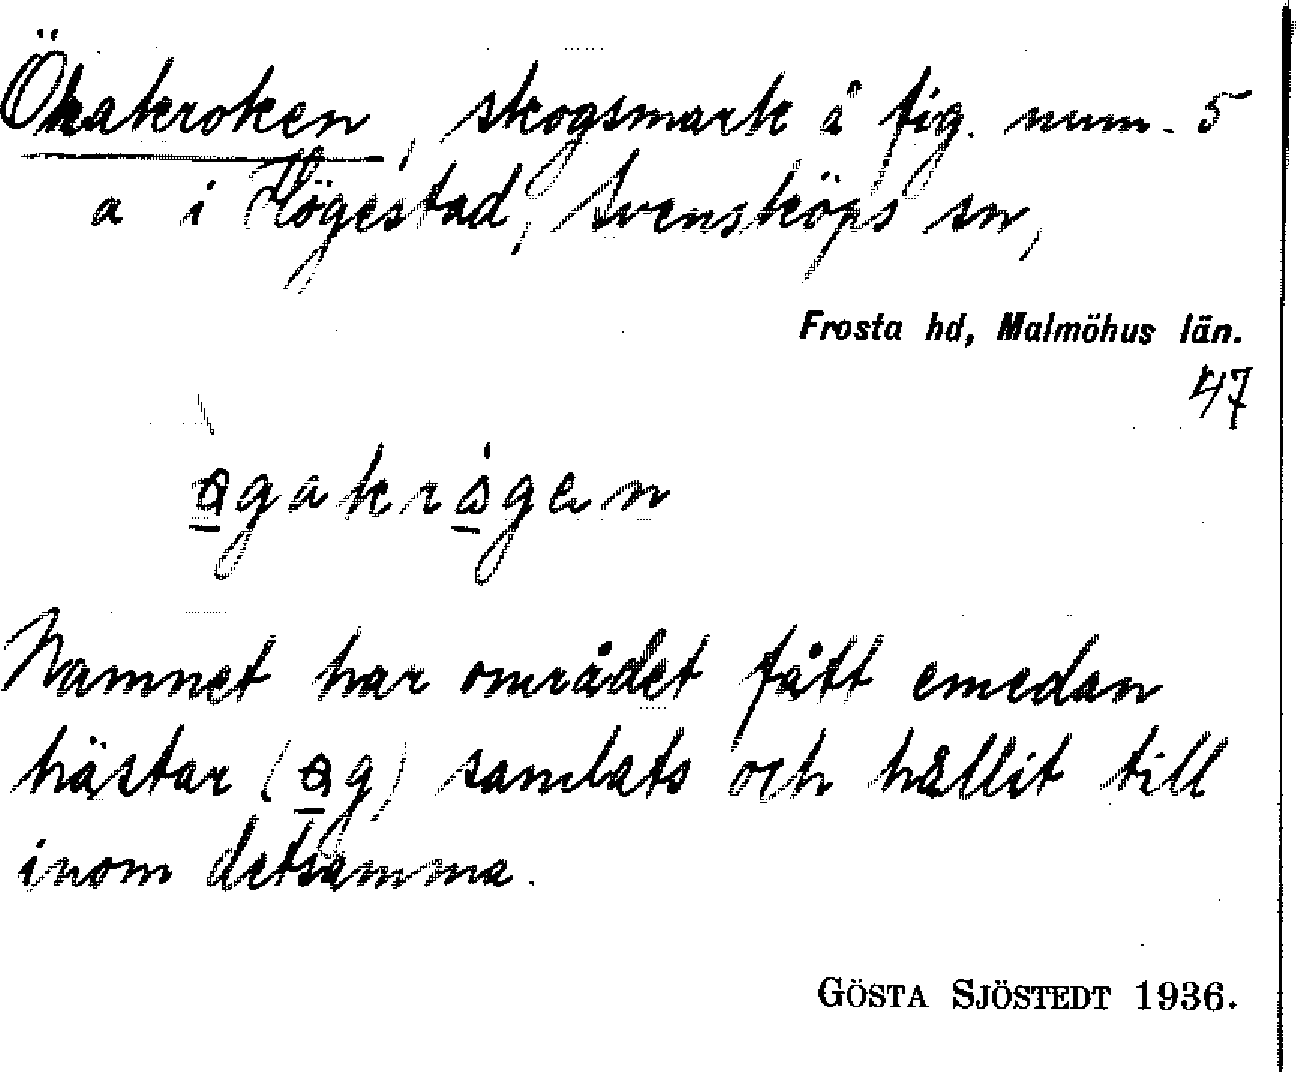 Ökakroken, skogsmark å fig. num. 5
a i Högestad, Svensköps sn,
Frosta hd, Malmöhus län.
47
Namnet har området fått emedan
hästar ( ) samlats och hållit till
inom detsamma.
GÖSTA SJÖSTEDT 1936.